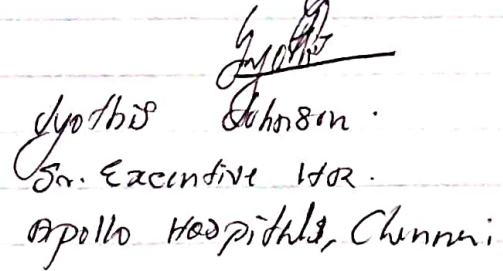 Jyothis
Jyothis Johnson.
Sr. Executive HR.
Apollo Hospitals, Chennai